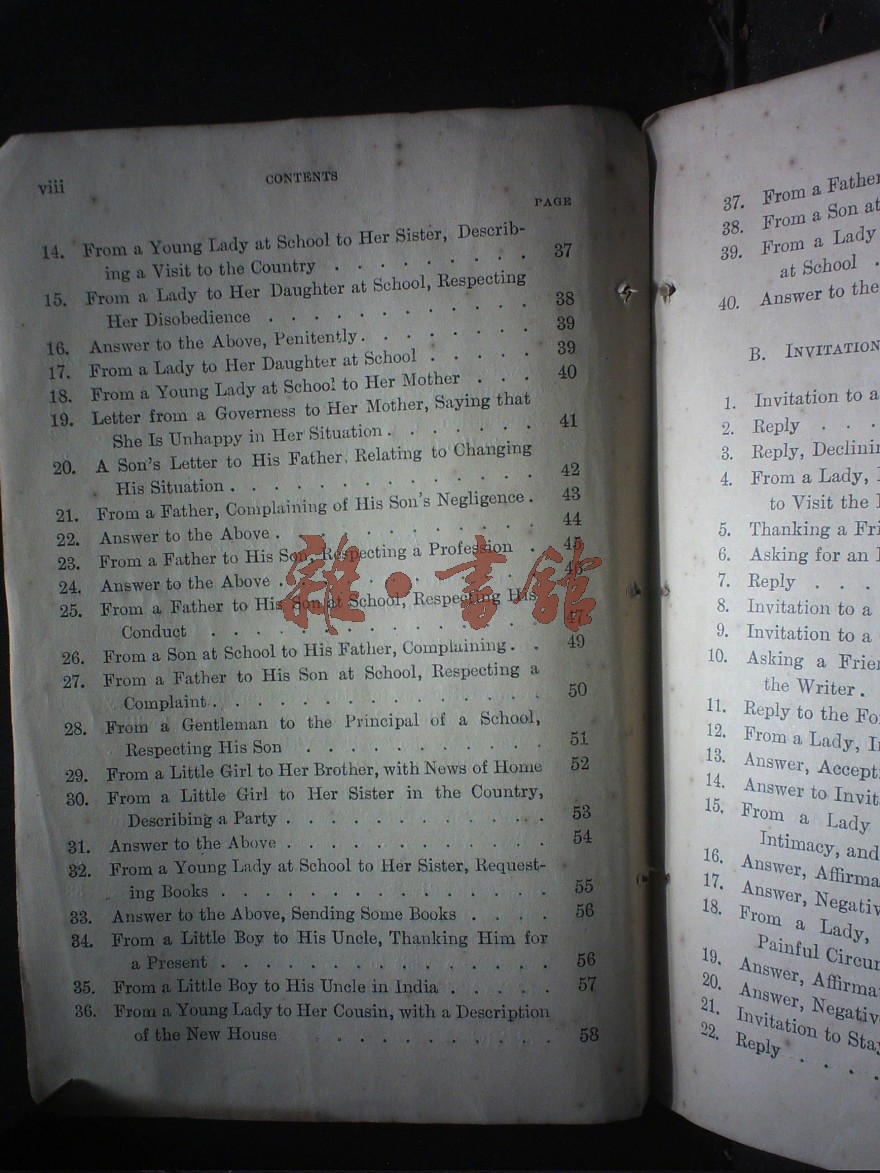 viii
CONTENTS
PAGE
14. From a Young Lady at School to Her Sister, Describ-
ing a Visit to the Country . . . . . . . . . 37
15. From a Lady to Her Daughter at School, Respecting
Her Disobedience . . . . . . . . . . . . 38
16. Answer to the Above, Penitently . . . . . . . . 39
17. From a Lady to Her Daughter at School . . . . . 39
18. From a Young Lady at School to Her Mother . . . 40
19. Letter from a Governess to Her Mother, Saying that
She Is Unhappy in Her Situation . . . . . . . 41
20. A Son's Letter to His Father, Relating to Changing
His Situation . . . . . . . . . . . . . 42
21. From a Father, Complaining of His Son's Negligence . 43
22. Answer to the Above . . . . . . . . . . . 44
23. From a Father to His Son, Respecting a Profession . 45
24. Answer to the Above . . . . . . . . . . . 46
25. From a Father to His Son at School, Respecting His
Conduct . . . . . . . . . . . . . . 47
26. From a Son at School to His Father, Complaining . . 49
27. From a Father to His Son at School, Respecting a
Complaint . . . . . . . . . . . . . . 50
28. From a Gentleman to the Principal of a School,
Respecting His Son . . . . . . . . . . 51
29. From a Little Girl to Her Brother, with News of Home 52
30. From a Little Girl to Her Sister in the Country,
Describing a Party . . . . . . . . . . . 53
31. Answer to the Above . . . . . . . . . . . 54
32. From a Young Lady at School to Her Sister, Request-
ing Books . . . . . . . . . . . . . . 55
33. Answer to the Above, Sending Some Books . . . . 56
34. From a Little Boy to His Uncle, Thanking Him for
a Present . . . . . . . . . . . . . . 56
35. From a Little Boy to His Uncle in India . . . . . 57
36. From a Young Lady to Her Cousin, with a Description
of the New House . . . . . . . . . . 58
雜·書館
37. From a Father
38. From a Son at
39. From a Lady
at School .
40. Answer to the
B. INVITATION
1. Invitation to a
2. Reply . . .
3. Reply, Declining
4. From a Lady,
to Visit the
5. Thanking a
6. Asking for an
7. Reply . . .
8. Invitation to a
9. Invitation to a
10. Asking a
the Writer .
11. Reply to the
12. From a Lady,
13. Answer,
14. Answer to
15. From a Lady
Intimacy, and
16. Answer,
17. Answer,
18. From a Lady,
Painful
19. Answer,
20. Answer,
21. Invitation to
22. Reply . . .